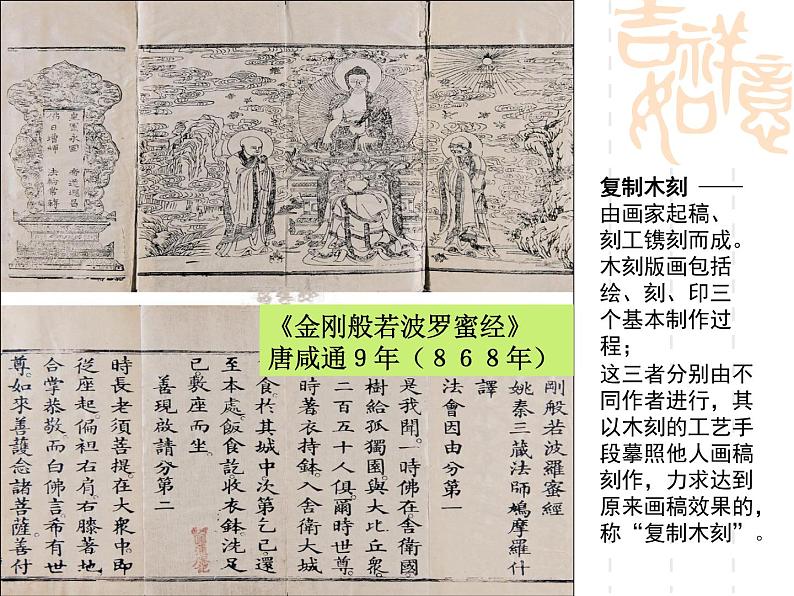 皇圖永固 帝道遐昌
佛日增輝 法輪常轉
吉祥
如意
复制木刻 ——
由画家起稿、
刻工镌刻而成。
木刻版画包括
绘、刻、印三
个基本制作过
程；
这三者分别由不
同作者进行，其
以木刻的工艺手
段摹照他人画稿
刻作，力求达到
原来画稿效果的，
称“复制木刻”。
《金刚般若波罗蜜经》
唐咸通９年（８６８年）
剛般若波羅蜜經
姚秦三藏法師鳩摩羅什
譯
法會因由分第一
是我聞。一時佛在舍衛國
樹給孤獨園。與大比丘衆
二百五十人俱。爾時世尊
時著衣持鉢。入舍衛大城
食。於其城中次第乞已。還
至本處。飯食訖收衣鉢洗足
已敷座而坐。
善現啟請分第二
時長老須菩提在大衆中。即
從座起。偏袒右肩右膝著地
合掌恭敬。而白佛言。希有世
尊。如來善護念諸菩薩。善付